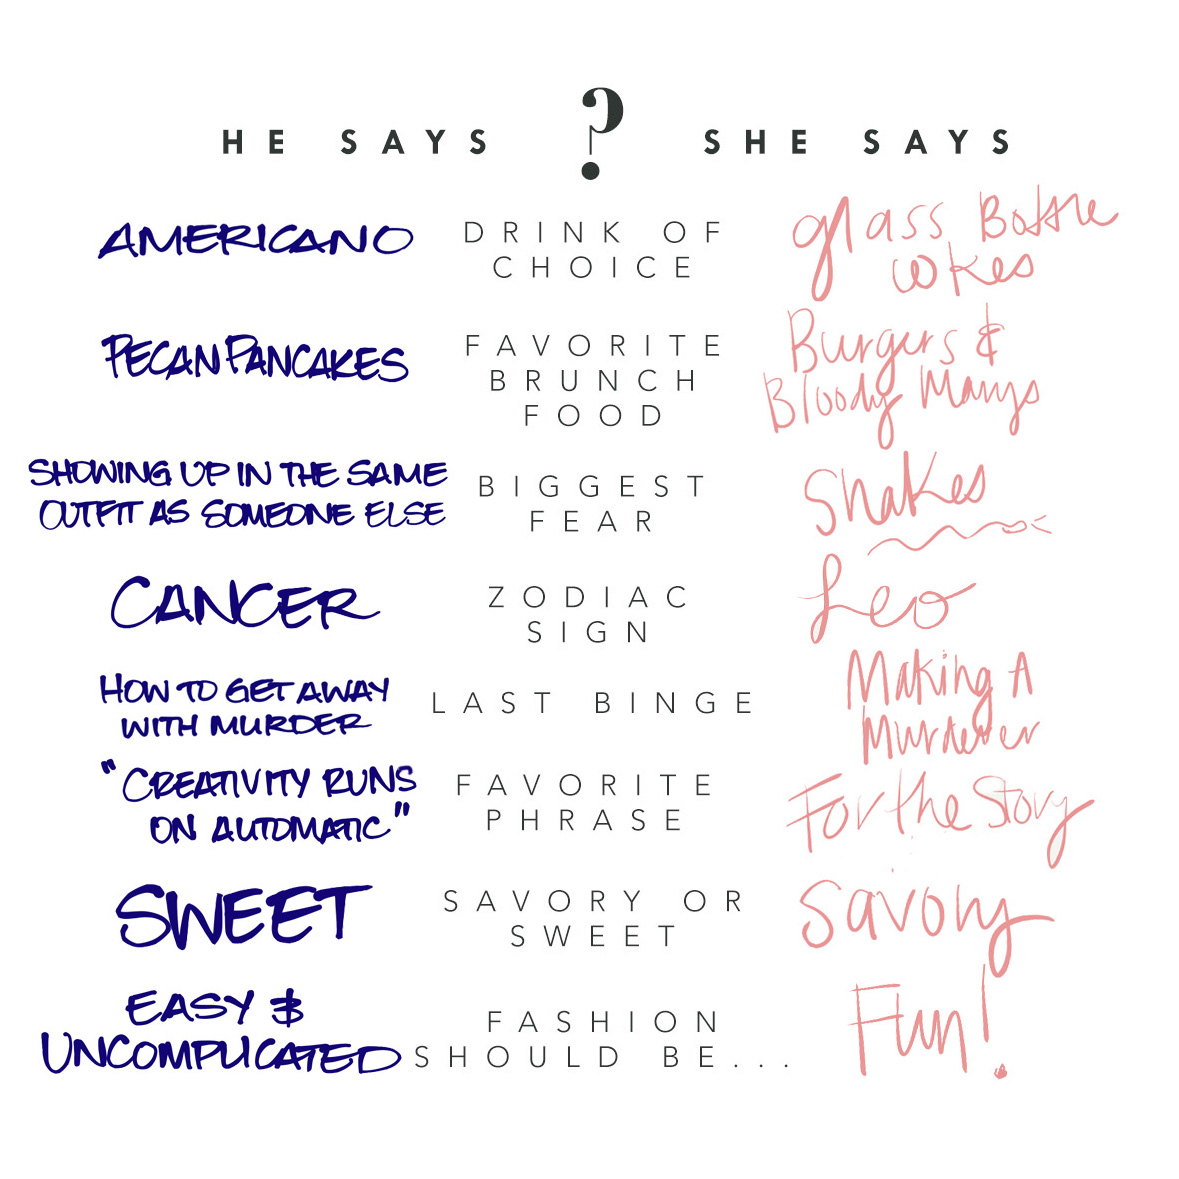 HE SAYS ? SHE SAYS
AMERICANO
DRINK OF
CHOICE
glass Bottle
cokes
PECAN PANCAKES
FAVORITE
BRUNCH
FOOD
Burgers &
Bloody Marys
SHOWING UP IN THE SAME
OUTFIT AS SOMEONE ELSE
BIGGEST
FEAR
Snakes
CANCER
ZODIAC
SIGN
Leo
HOW TO GET AWAY
WITH MURDER
LAST BINGE
Making A
Murderer
"CREATIVITY RUNS
ON AUTOMATIC"
FAVORITE
PHRASE
For the Story
SWEET
SAVORY OR
SWEET
Savory
EASY &
UNCOMPLICATED
FASHION
SHOULD BE...
Fun!